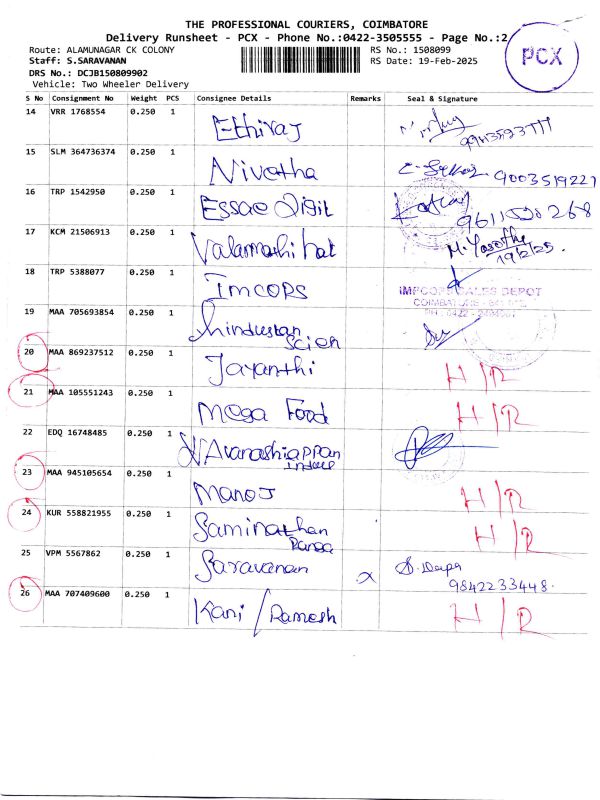 THE PROFESSIONAL COURIERS, COIMBATORE
Delivery Runsheet - PCX - Phone No.:0422-3505555 - Page No.:2
Route: ALAMUNAGAR CK COLONY RS No.: 1508099
Staff: S.SARAVANAN RS Date: 19-Feb-2025
DRS No.: DCJB150809902
Vehicle: Two Wheeler Delivery
PCX
S No Consignment No Weight PCS Consignee Details Remarks Seal & Signature
14 VRR 1768554 0.250 1 Ethiraj
15 SLM 364736374 0.250 1 Nivetha 9003519221
16 TRP 1542950 0.250 1 Essae Digit
17 KCM 21506913 0.250 1 Valarmathi hat 19/2/25.
18 TRP 5388077 0.250 1 Imcops
IMPCOPS SALES DEPOT
19 MAA 705693854 0.250 1 hindustan
Scien
20 MAA 869237512 0.250 1 Jayanthi H/R
21 MAA 105551243 0.250 1 Mega Food H/R
22 EDQ 16748485 0.250 1 Avanashiappan
23 MAA 945105654 0.250 1 Manoj H/R
24 KUR 558821955 0.250 1 Saminathan H/R
25 VPM 5567862 0.250 1 Saravanan x S. Deepa
9842233448.
26 MAA 707409600 0.250 1 Kani / Ramesh H/R